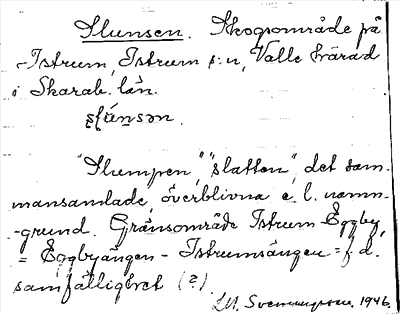 Slunsen. Skogsområde på
Istrum, Istrum s:n, Valle härad
i Skarab. län.
slúnsən.
"Slumpen", "slatten", det sam-
mansamlade, överblivna e. l. namn-
grund. Gränsområde Istrum-Eggby,
= Eggbyängen - Istrumsängen = f.d.
samfällighet (?)
1946.